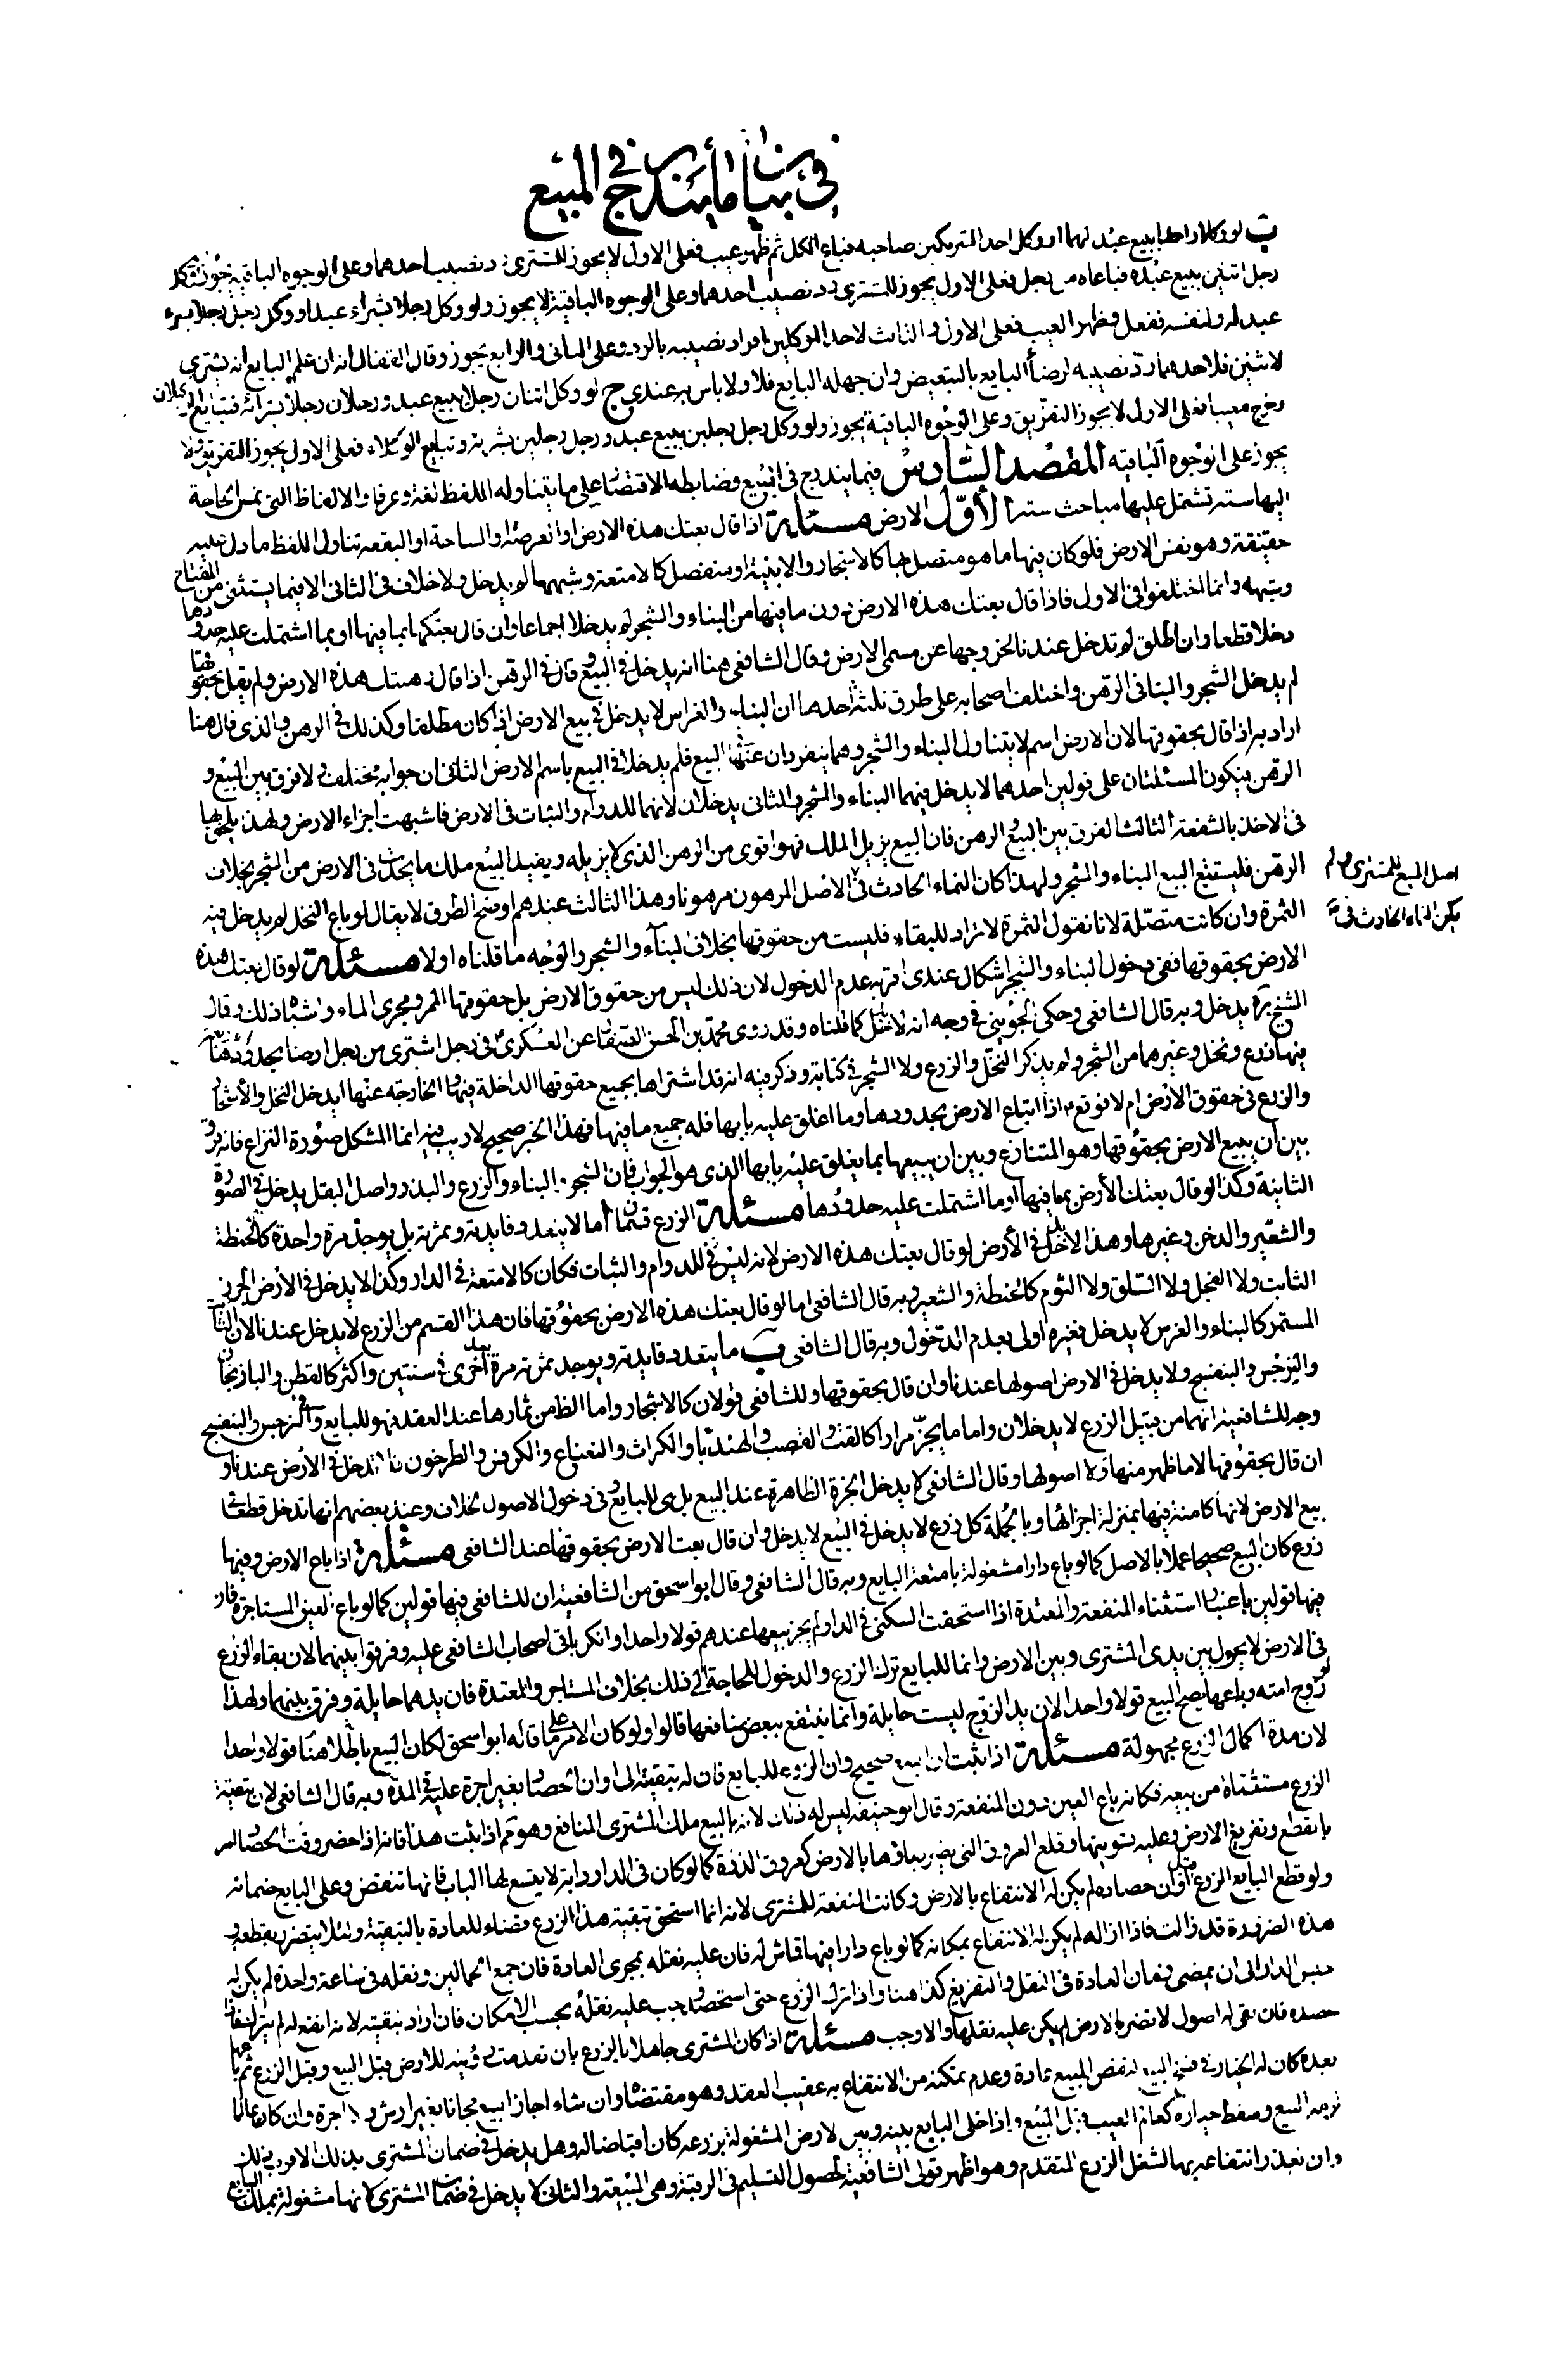 في بيان ما يندرج في المبيع
ب لو وكلا واحدا ببيع عبد لهما او وكل احد الشريكين صاحبه فباع الكل ثم ظهر عيب فعلى الاول لا يجوز للمشتري رد نصيب احدهما وعلى الوجوه الباقية يجوز ولو وكل
رجل اثنين ببيع عبده فباعاه من رجل فعلى الاول يجوز للمشتري رد نصيب احدهما وعلى الوجوه الباقية لا يجوز ولو وكل رجلا بشراء عبد او وكل رجل رجلا بشراء
عبد له ولنفسه ففعل وظهر العيب فعلى الاول والثالث لاحد الموكلين افراد نصيبه بالرد وعلى الثاني والرابع يجوز وقال القفال انه ان علم البايع انه يشتري
لاثنين فلاحدهما رد نصيبه لرضا البايع بالتبعيض وان جهله البايع فلا ولا باس به عندي ج لو وكل اثنان رجلا ببيع عبد ورجلان رجلا بشرائه فتبايع الوكيلان
وخرج معيبا فعلى الاول لا يجوز التفريق وعلى الوجوه الباقية يجوز ولو وكل رجل رجلين ببيع عبد ورجل رجلين بشرائه وتبايع الوكلاء فعلى الاول يجوز التفريق ولا
يجوز على الوجوه الباقية المقصد السادس فيما يندرج في المبيع وضابطه الاقتصار على ما يتناوله اللفظ لغة وعرفا والالفاظ التي تمس الحاجة
اليها ستة تشتمل عليها مباحث ستة الأول الارض مسئلة اذا قال بعتك هذه الارض او العرصة او الساحة او البقعة تناول اللفظ ما دل عليه
حقيقة وهو نفس الارض فلو كان فيها ما هو متصل بها كالاشجار والابنية او منفصل كالامتعة وشبهها لم يدخل ولا خلاف في الثاني الا فيما يستثنى من المفتاح
وشبهه وانما اختلفوا في الاول فاذا قال بعتك هذه الارض دون ما فيها من البناء والشجر لم يدخلا اجماعا وان قال بعتكها بما فيها او بما اشتملت عليه حدودها
دخلا قطعا وان اطلق لم تدخل عندنا لخروجها عن مسمى الارض وقال الشافعي هنا انه يدخل في البيع وقال في الرهن اذا قال رهنتك هذه الارض ولم يقل بحقوقها
لم يدخل الشجر والبناء في الرهن واختلف اصحابه على طرق ثلثة احدها ان البناء والغراس لا يدخل في بيع الارض اذا كان مطلقا وكذلك في الرهن والذي قال هنا
اراد به اذا قال بحقوقها لان الارض اسم لا يتناول البناء والشجر وهما ينفردان عنها البيع فلم يدخلا في البيع باسم الارض الثاني ان جوابه مختلف ولا فرق بين البيع و
الرهن فيكون المسئلتان على قولين احدهما لا يدخل فيهما البناء والشجر والثاني يدخلان لانهما للدوام والثبات في الارض فاشبهت اجزاء الارض ولهذا يلحق بها
في الاخذ بالشفعة الثالث الفرق بين البيع والرهن فان البيع يزيل الملك فهو اقوى من الرهن الذي لا يزيله ويفيد البيع ملك ما يحدث في الارض من الشجر بخلاف
الرهن فليستتبع البيع البناء والشجر ولهذا كان النماء الحادث في اصل المبيع للمشتري ولم يكن النماء الحادث في الاصل المرهون مرهونا وهذا الثالث عندهم اوضح الطرق لا يقال لو باع النخل لم يدخل فيه
الثمرة وان كانت متصلة لانا نقول الثمرة لا تراد للبقاء فليست من حقوقها بخلاف البناء والشجر والوجه ما قلناه اولا مسئلة لو قال بعتك هذه
الارض بحقوقها ففي دخول البناء والشجر اشكال عندي اقربه عدم الدخول لان ذلك ليس من حقوق الارض بل حقوقها الممر ومجرى الماء واشباه ذلك وقال
الشيخ ره يدخل وبه قال الشافعي وحكى الجويني في وجه انه لا يدخل كما قلناه وقد روى محمد بن الحسن الصفار عن العسكري في رجل اشترى من رجل ارضا بحدودها
فيها زرع ونخل وغيرهما من الشجر ولم يذكر النخل والزرع ولا الشجر في كتابة وذكر فيه انه قد اشتراها بجميع حقوقها الداخلة فيها والخارجة عنها ايدخل النخل والأشجار
والزرع في حقوق الارض ام لا فوقع ع اذا ابتاع الارض بحدودها وما اغلق عليه بابها فله جميع ما فيها فهذا الخبر صحيح لا ريب فيه انما المشكل صورة النزاع فانه فرق
بين ان يبيع الارض بحقوقها وهو المتنازع وبين ان يبيعها بما يغلق عليه بابها الذي هو الجواب فان الشجر والبناء والزرع والبذر واصل البقل يدخل في الصورة
الثانية وكذا لو قال بعتك الأرض بما فيها او ما اشتملت عليه حدودها مسئلة الزرع قسمان أ ما لا يتعدد فايدته وثمرته بل يوجد مرة واحدة كالحنطة
والشعير والدخن وغيرها وهذا لا يدخل في الأرض لو قال بعتك هذه الارض لانه ليس في للدوام والثبات فكان كالامتعة في الدار وكذا لا يدخل في الارض الجزر
الثابت ولا الفجل ولا السلق ولا الثوم كالحنطة والشعير وبه قال الشافعي اما لو قال بعتك هذه الارض بحقوقها فان هذا القسم من الزرع لا يدخل عندنا لان الثابت
المستمر كالبناء والغرس لا يدخل فغيره اولى بعدم الدخول وبه قال الشافعي ب ما يتعدد فايدته ويوجد ثمرته مرة بعد أخرى في سنتين واكثر كالقطن والباذنجان
والنرجس والبنفسج ولا يدخل في الارض اصولها عندنا وان قال بحقوقها وللشافعي قولان كالاشجار واما الظاهر من ثمارها عند العقد فهو للبايع والنرجس والبنفسج
وجه للشافعية انهما من قبيل الزرع لا يدخلان واما ما يجز مرارا كالقت والقصب والهندبا والكراث والنعناع والكرفس والطرخون فلا تدخل في الارض عندنا و
ان قال بحقوقها لا ما ظهر منها ولا اصولها وقال الشافعي لا يدخل الجزة الظاهرة عند البيع بل هي للبايع وفي دخول الاصول خلاف وعند بعضهم انها تدخل قطعا في
بيع الارض لانها كامنة فيها بمنزلة اجزائها وبالجملة كل زرع لا يدخل في البيع لا يدخل وان قال بعت الارض بحقوقها عند الشافعي مسئلة اذا باع الارض وفيها
زرع كان البيع صحيحا عملا بالاصل كما لو باع دارا مشغولة بامتعة البايع وبه قال الشافعي وقال ابو اسحق من الشافعية ان للشافعي فيها قولين كما لو باع العين المستاجرة فان
فيها قولين باعتبار استثناء المنفعة والمعتدة اذا استحقت السكنى في الدار لم يجز بيعها عندهم قولا واحدا وانكر باقي اصحاب الشافعي عليه وفرقوا بينهما لان بقاء الزرع
في الارض لا يحول بين يدى المشتري وبين الارض وانما للبايع ترك الزرع والدخول للحاجة الى ذلك بخلاف المستاجر والمعتدة فان يدهما حايلة وفرق بينهما ولهذا لو
زوج امته وباعها يصح البيع قولا واحدا لان يد الزوج ليست حايلة وانما ينتفع ببعض منافعها قالوا ولو كان الامر على ما قاله ابو اسحق لكان البيع باطلا هنا قولا واحدا
لان مدة اكمال الزرع مجهولة مسئلة اذا ثبت ان البيع صحيح وان الزرع للبايع فان له تبقيته الى اوان الحصاد بغير اجرة عليه في المدة وبه قال الشافعي لان تبقية
الزرع مستثناة من بيعه فكانه باع العين دون المنفعة وقال ابو حنيفه ليس له ذلك لانه بالبيع ملك المشتري المنافع وهو تم اذا ثبت هذا فانه اذا حضر وقت الحصاد امر
بالقطع وتفريغ الارض وعليه تسويتها وقلع العروق التي يضر بقاؤها بالارض كعروق الذرة كما لو كان في الدار دابة لا يتسع لها الباب فانها تنقض وعلى البايع ضمانه
ولو قطع البايع الزرع قبل اوان حصاده لم يكن له الانتفاع بالارض وكانت المنفعة للمشتري لانه انما استحق تبقية هذا الزرع قضاء للعادة بالتبقية ولئلا يتضرر بقطعه و
هذه الضرورة قد زالت فاذا ازاله لم يكن له الانتفاع بمكانه كما لو باع دارا فيها قماش له فان عليه نقله بمجرى العادة فان جمع الحمالين ونقله في ساعة واحدة لم يكن له
حبس الدار الى ان يمضي زمان العادة في النقل والتفريغ كذا هنا واذا ترك الزرع حتى استحصد وجب عليه نقله بحسب الامكان فان اراد تبقيته لانه انفع له لم
حصده فان بقي له اصول لا تضر بالارض لم يكن عليه نقلها والا وجب مسئلة اذا كان المشتري جاهلا بالزرع بان تقدمت رؤيته للارض قبل البيع وقبل الزرع ثم باعها
بعده كان له الخيار في فسخ البيع لنقص المبيع عادة وعدم تمكنه من الانتفاع به عقيب العقد وهو مقتضاه وان شاء اجاز البيع مجانا بغير ارش ولا اجرة وان كان عالما
لزمه البيع وسقط خياره كعالم العيب قبل البيع واذا خلى البايع بينه وبين الارض المشغولة بزرعه كان اقباضا له وهل يدخل في ضمان المشتري بذلك الاقرب ذلك
وان تعذر انتفاعه بها لشغل الزرع المتقدم وهو اظهر قولى الشافعية لحصول التسليم في الرقبة وهي المبيعة والثاني لا يدخل في ضمان المشتري لانها مشغولة بملك البايع